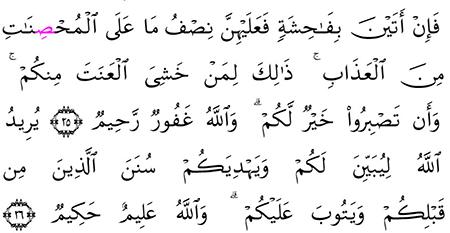 فَإِنْ أَتَيْنَ بِفَٰحِشَةٍۢ فَعَلَيْهِنَّ نِصْفُ مَا عَلَى ٱلْمُحْصِنَٰتِ
مِنَ ٱلْعَذَابِ ۚ ذَٰلِكَ لِمَنْ خَشِىَ ٱلْعَنَتَ مِنكُمْ ۚ
وَأَن تَصْبِرُوا۟ خَيْرٌۭ لَّكُمْ ۗ وَٱللَّهُ غَفُورٌۭ رَّحِيمٌۭ ﴿٢٥﴾ يُرِيدُ
ٱللَّهُ لِيُبَيِّنَ لَكُمْ وَيَهْدِيَكُمْ سُنَنَ ٱلَّذِينَ مِن
قَبْلِكُمْ وَيَتُوبَ عَلَيْكُمْ ۗ وَٱللَّهُ عَلِيمٌ حَكِيمٌۭ ﴿٢٦﴾